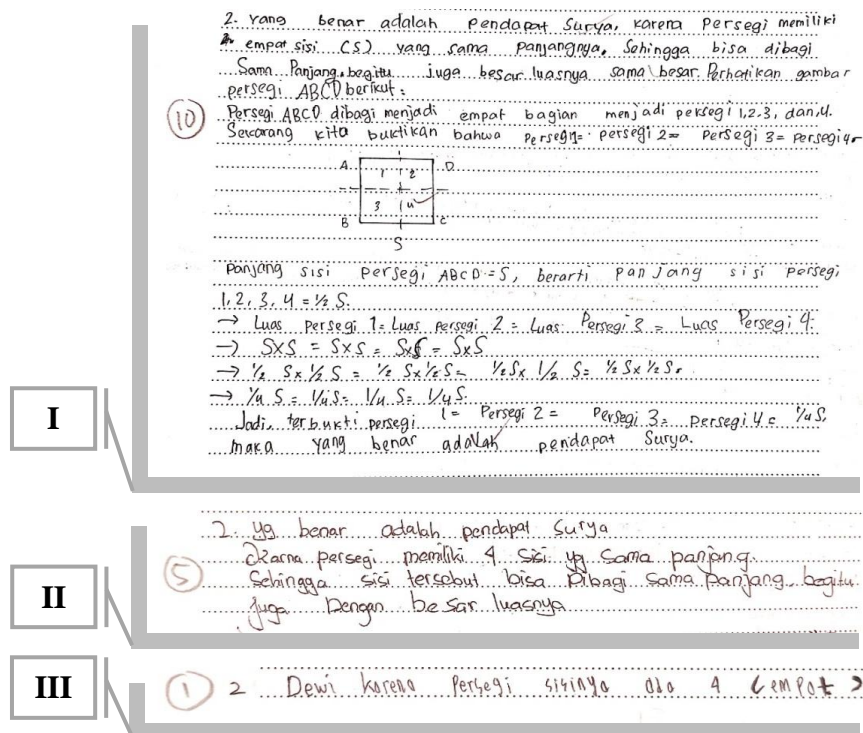 2. Yang benar adalah pendapat Surya, karena persegi memiliki
empat sisi (S) yang sama panjangnya, Sehingga bisa dibagi
Sama Panjang, begitu juga besar luasnya sama besar. Perhatikan gambar
persegi ABCD berikut:
10
Persegi ABCD dibagi menjadi empat bagian menjadi persegi 1,2,3, dan,4.
Sekarang kita buktikan bahwa persegi1= persegi 2= Persegi 3= persegi 4.
A D
1 2
3 4
B C
S
Panjang sisi persegi ABCD = S, berarti panjang sisi persegi
1, 2, 3, 4 = ½ S.
→ Luas persegi 1= Luas persegi 2 = Luas Persegi 3 = Luas Persegi 4.
→ SxS = SxS = SxS = SxS
→ ½ S x ½ S = ½ S x ½ S = ½ S x ½ S = ½ S x ½ S.
→ ¼ S = ¼ S = ¼ S = ¼ S.
Jadi, terbukti persegi 1= Persegi 2 = Persegi 3 = persegi 4 = ¼ S,
maka yang benar adalah pendapat Surya.
I
2. yg benar adalah pendapat Surya
Karna persegi memiliki 4 sisi yg sama panjang.
5
Sehingga sisi tersebut bisa Dibagi sama panjang, begitu
juga Dengan besar luasnya
II
III
1
2 Dewi karena Persegi sisinya ada 4 (empat)